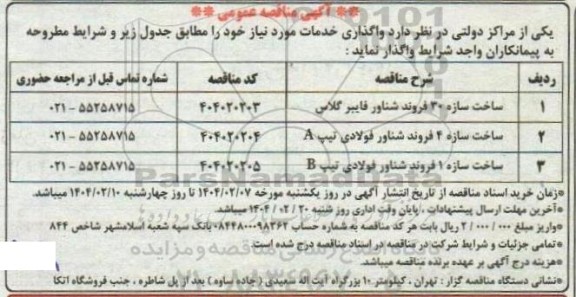 ** آگهی مناقصه عمومی **
یکی از مراکز دولتی در نظر دارد واگذاری خدمات مورد نیاز خود را مطابق جدول زیر و شرایط مطروحه
به پیمانکاران واجد شرایط واگذار نماید :
ردیف شرح مناقصه کد مناقصه شماره تماس قبل از مراجعه حضوری
۱ ساخت سازه ۳۰ فروند شناور فایبر گلاس ۴۰۴۰۲۰۲۰۳ ۰۲۱ – ۵۵۲۵۸۷۱۵
۲ ساخت سازه ۴ فروند شناور فولادی تیپ A ۴۰۴۰۲۰۲۰۴ ۰۲۱ – ۵۵۲۵۸۷۱۵
۳ ساخت سازه ۱ فروند شناور فولادی تیپ B ۴۰۴۰۲۰۲۰۵ ۰۲۱ – ۵۵۲۵۸۷۱۵
*زمان خرید اسناد مناقصه از تاریخ انتشار آگهی در روز یکشنبه مورخه ۱۴۰۴/۰۲/۰۷ تا روز چهارشنبه ۱۴۰۴/۰۲/۱۰ میباشد.
*آخرین مهلت ارسال پیشنهادات ، پایان وقت اداری روز شنبه ۲۰ / ۰۲ / ۱۴۰۴ میباشد.
*واریز مبلغ ۰۰۰ / ۰۰۰ / ۲ ریال بابت هر کد مناقصه به شماره حساب ۰۸۴۴۸۰۰۰۹۸۳۶۲ بانک سپه شعبه اسلامشهر شاخص ۸۴۴
*تمامی جزئیات و شرایط شرکت در مناقصه در اسناد مناقصه درج شده است.
*هزینه درج آگهی بر عهده برنده مناقصه میباشد.
*نشانی دستگاه مناقصه گزار : تهران ، کیلومتر ۱۰ بزرگراه آیت اله سعیدی (جاده ساوه) بعد از پل شاطره ، جنب فروشگاه اتکا